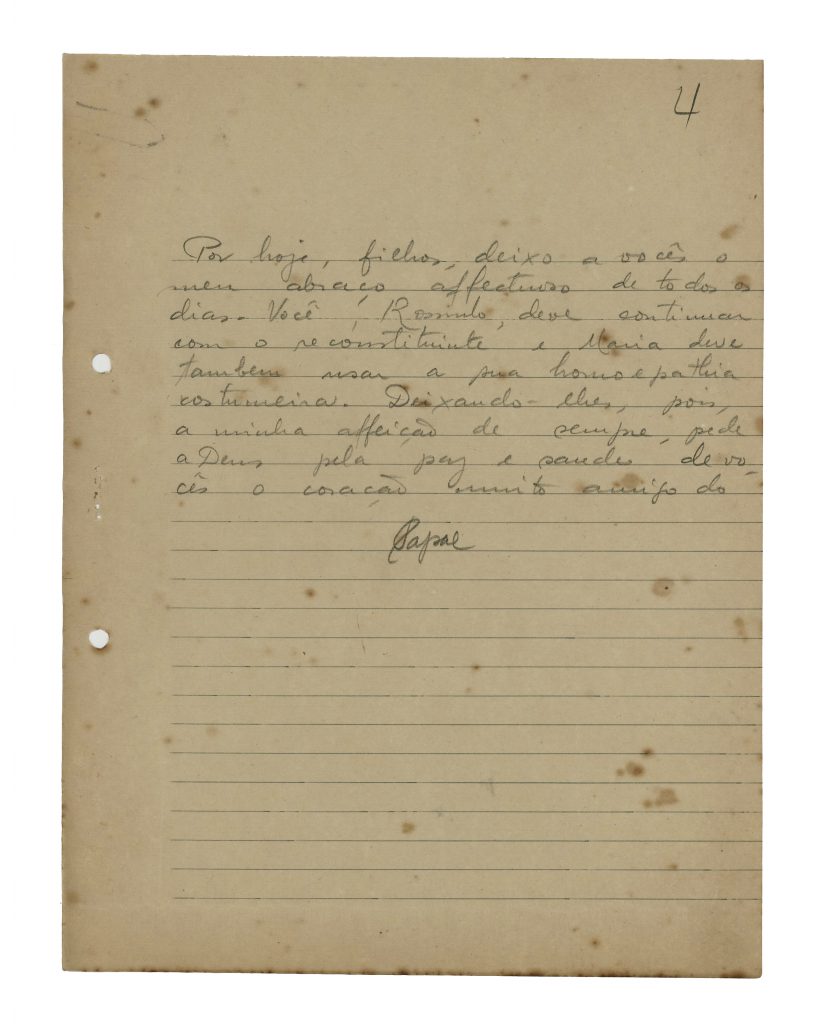 4
Por hoje, filhos, deixo a vocês o
meu abraço affectuoso de todos os
dias. Você, Romulo, deve continuar
com o reconstituinte e Maria deve
tambem usar a sua homoepathia
costumeira. Deixando-lhes, pois,
a minha affeição de sempre, pede
a Deus pela paz e saude de vo-
cês o coração muito amigo do
Papae